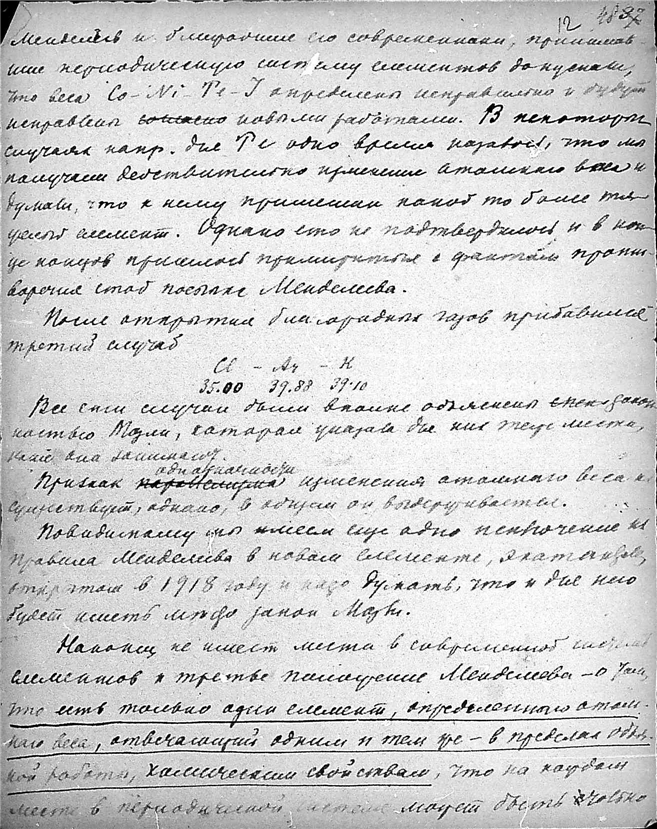 12 483
Менделеев и ближайшие его современники, принимав-
шие периодическую систему элементов допускали,
что веса Co-Ni-Te-J определены неправильно и будут
исправлены согласно новыми работами. В некоторых
случаях напр. для Te одно время казалось, что мы
получаем действительно изменение атомного веса и
думали, что к нему примешан какой то более тя-
желый элемент. Однако это не подтвердилось и в кон-
це концов пришлось примириться с фактом проти-
воречия этой посылке Менделеева.
После открытия благородных газов прибавился
третий случай
Cl - Ar - K
35.00 39.88 39.10
Все эти случаи были вполне объяснены закон-
ностью Мозли, которая указала для них те же места,
какие они занимают.
однозначности
Признак изменения атомного веса не
существует, однако, в общем он выдерживается.
Повидимому мы имеем еще одно исключение из
правила Менделеева в новом элементе,
открытом в 1918 году и надо думать, что и для него
будет иметь место закон Мозли.
Наконец не имеет места в современной системе
элементов и третье положение Менделеева - о том,
что есть только один элемент, определенного атом-
ного веса, отвечающий одним и тем же - в пределах обыч-
ной работы, химическим свойствам, что на каждом
месте в периодической системе может быть только